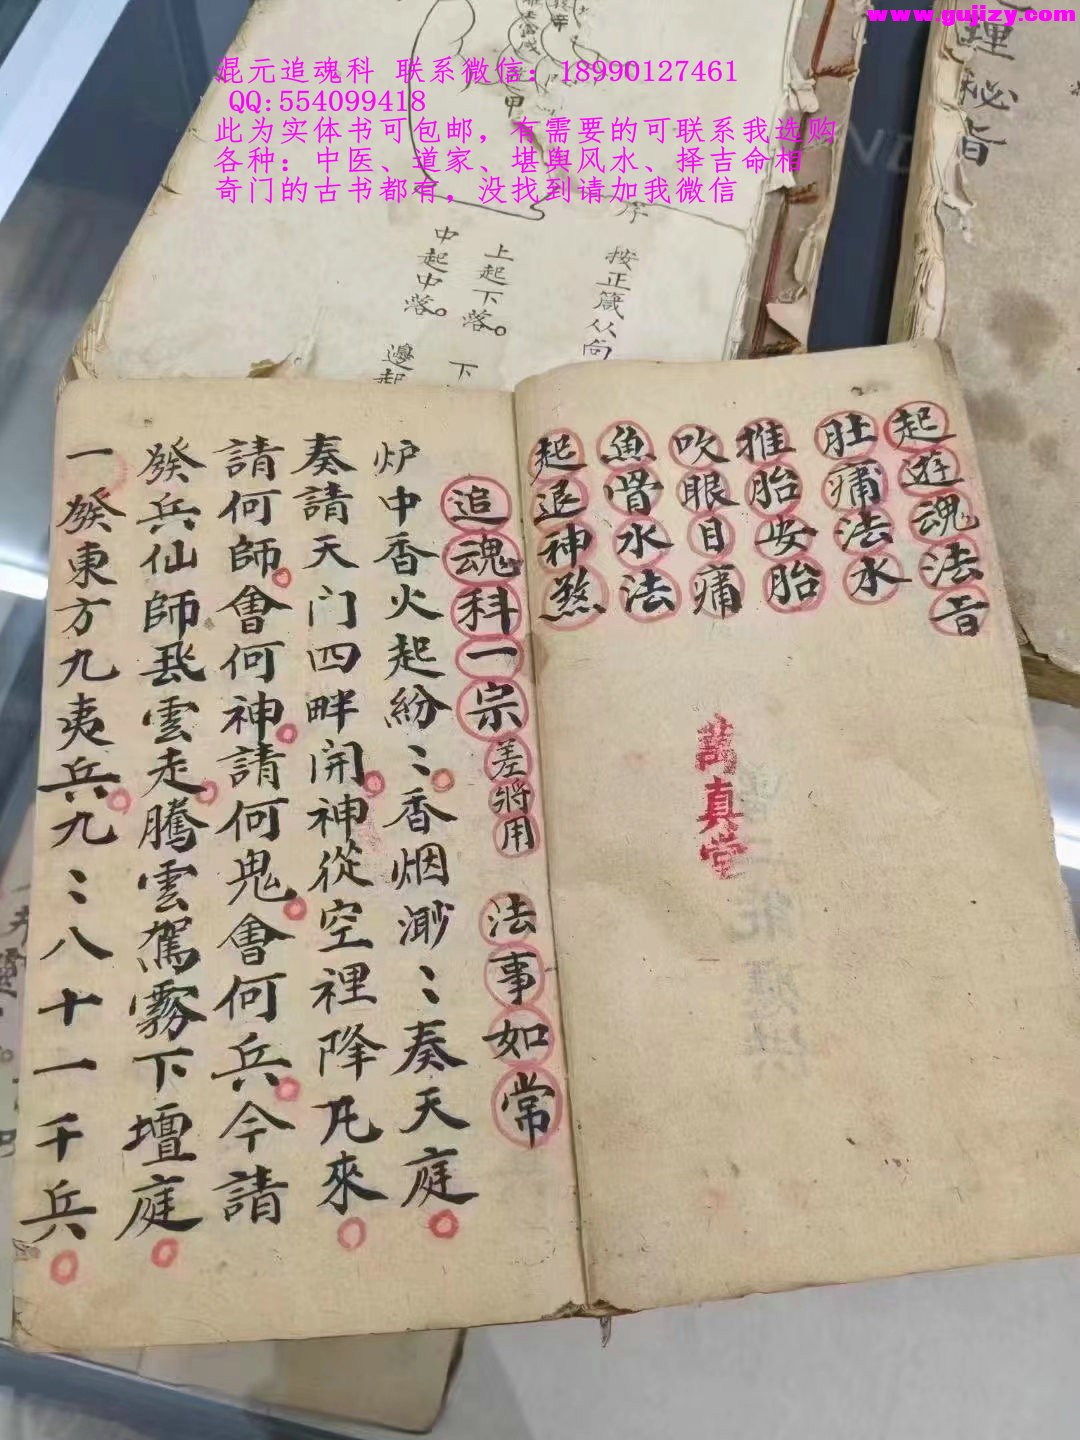 www.gujizy.com
混元追魂科 联系微信：18990127461
QQ:554099418
此为实体书可包邮，有需要的可联系我选购
各种：中医、道家、堪舆风水、择吉命相
奇门的古书都有，没找到请加我微信
理秘旨
序
按正箴从向
上起下落。
中起中落。
下
邊起
甲
起遊魂法旨
肚痛法水
推胎安胎
吹眼目痛
魚骨水法
起退神煞
萬真堂
追魂科一宗 差將用 法事如常
炉中香火起紛〻香烟渺〻奏天庭
奏請天门四畔開神從空裡降凡來
請何師會何神請何鬼會何兵今請
發兵仙師飛雲走騰雲駕霧下壇庭
一發東方九夷兵九〻八十一千兵